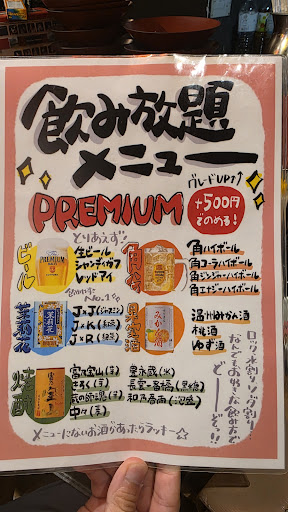 飲み放題
メニュー
グレードUP↑
PREMIUM
+500円
でのめる!
とりあえず!
ビール
生ビール
シャンディガフ
レッドアイ
角
角ハイボール
角コーラハイボール
角ジンジャーハイボール
角エナジーハイボール
No.1
茉莉花
J×J(ジャスミン)
J×K(紅茶)
J×R
果実酒
温州みかん酒
桃酒
ゆず酒
ロック、水割り、ソーダ割り…
なんでもお好きな飲み方で
どーぞっ!!
焼酎
富乃宝山(芋)
里永蔵(米)
長雲一番橋(黒糖)
中々(麦)
メニューにないお酒があったらラッキー☆